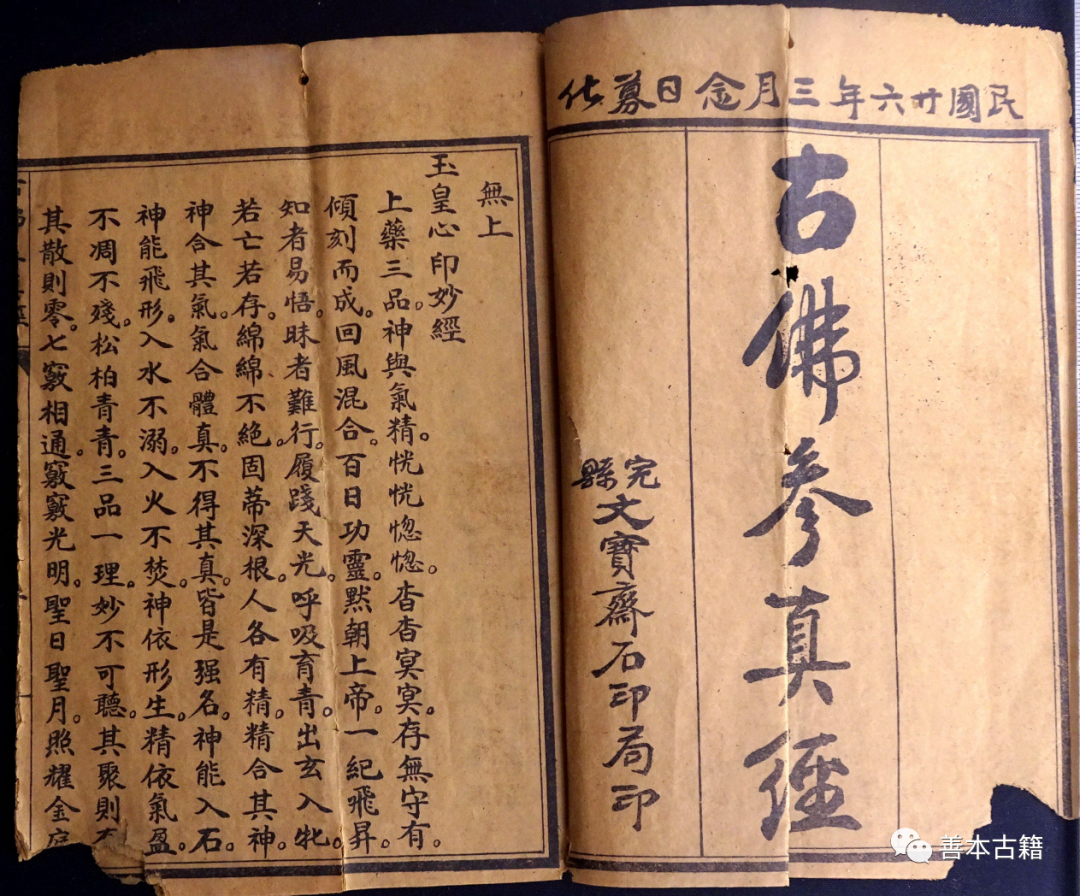 民國廿六年三月念日募化
古佛参真經
完縣
文寶齋石印局印
無上
玉皇心印妙經
上藥三品。神與氣精。恍恍惚惚。杳杳冥冥。存無守有。
傾刻而成。回風混合。百日功靈。默朝上帝。一紀飛昇。
知者易悟。昧者難行。履踐天光。呼吸育青。出玄入牝。
若亡若存。綿綿不絶。固蒂深根。人各有精。精合其神。
神合其氣。氣合體真。不得其真。皆是强名。神能入石。
神能飛形。入水不溺。入火不焚。神依形生。精依氣盈。
不凋不殘。松柏青青。三品一理。妙不可聽。其聚則
其散則零。七竅相通。竅竅光明。聖日聖月。照耀金庭
善本古籍